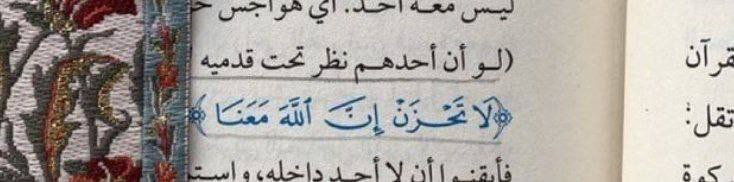 ليس معه أحد. أي هواجس
(لو أن أحدهم نظر تحت قدميه
﴿لَا تَحْزَنْ إِنَّ اللَّهَ مَعَنَا﴾
فأيقنوا أن لا أحد داخله، واستـ
قرآن
تقل: